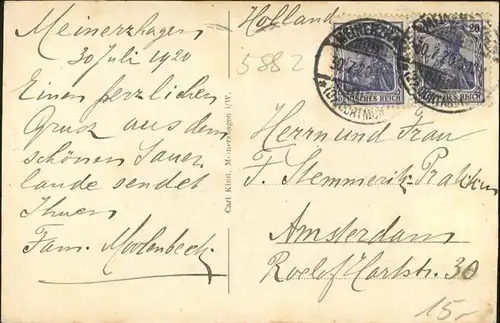 Meinerzhagen
30 Juli 1920
Einen herzlichen
Gruss aus dem
schönen Sauer
lande sendet
Ihnen
Fam. Moolenbeek
Carl Kind, Meinerzhagen i/W.
Holland
5882
MEINERZHAGEN
30.7.20
(BZ. DORTMUND)
DEUTSCHES REICH
20
30.7.20
DEUTSCHES REICH
Herrn und Frau
F. Stemmerik-
Amsterdam
Roelof Hartstr. 30
15,-